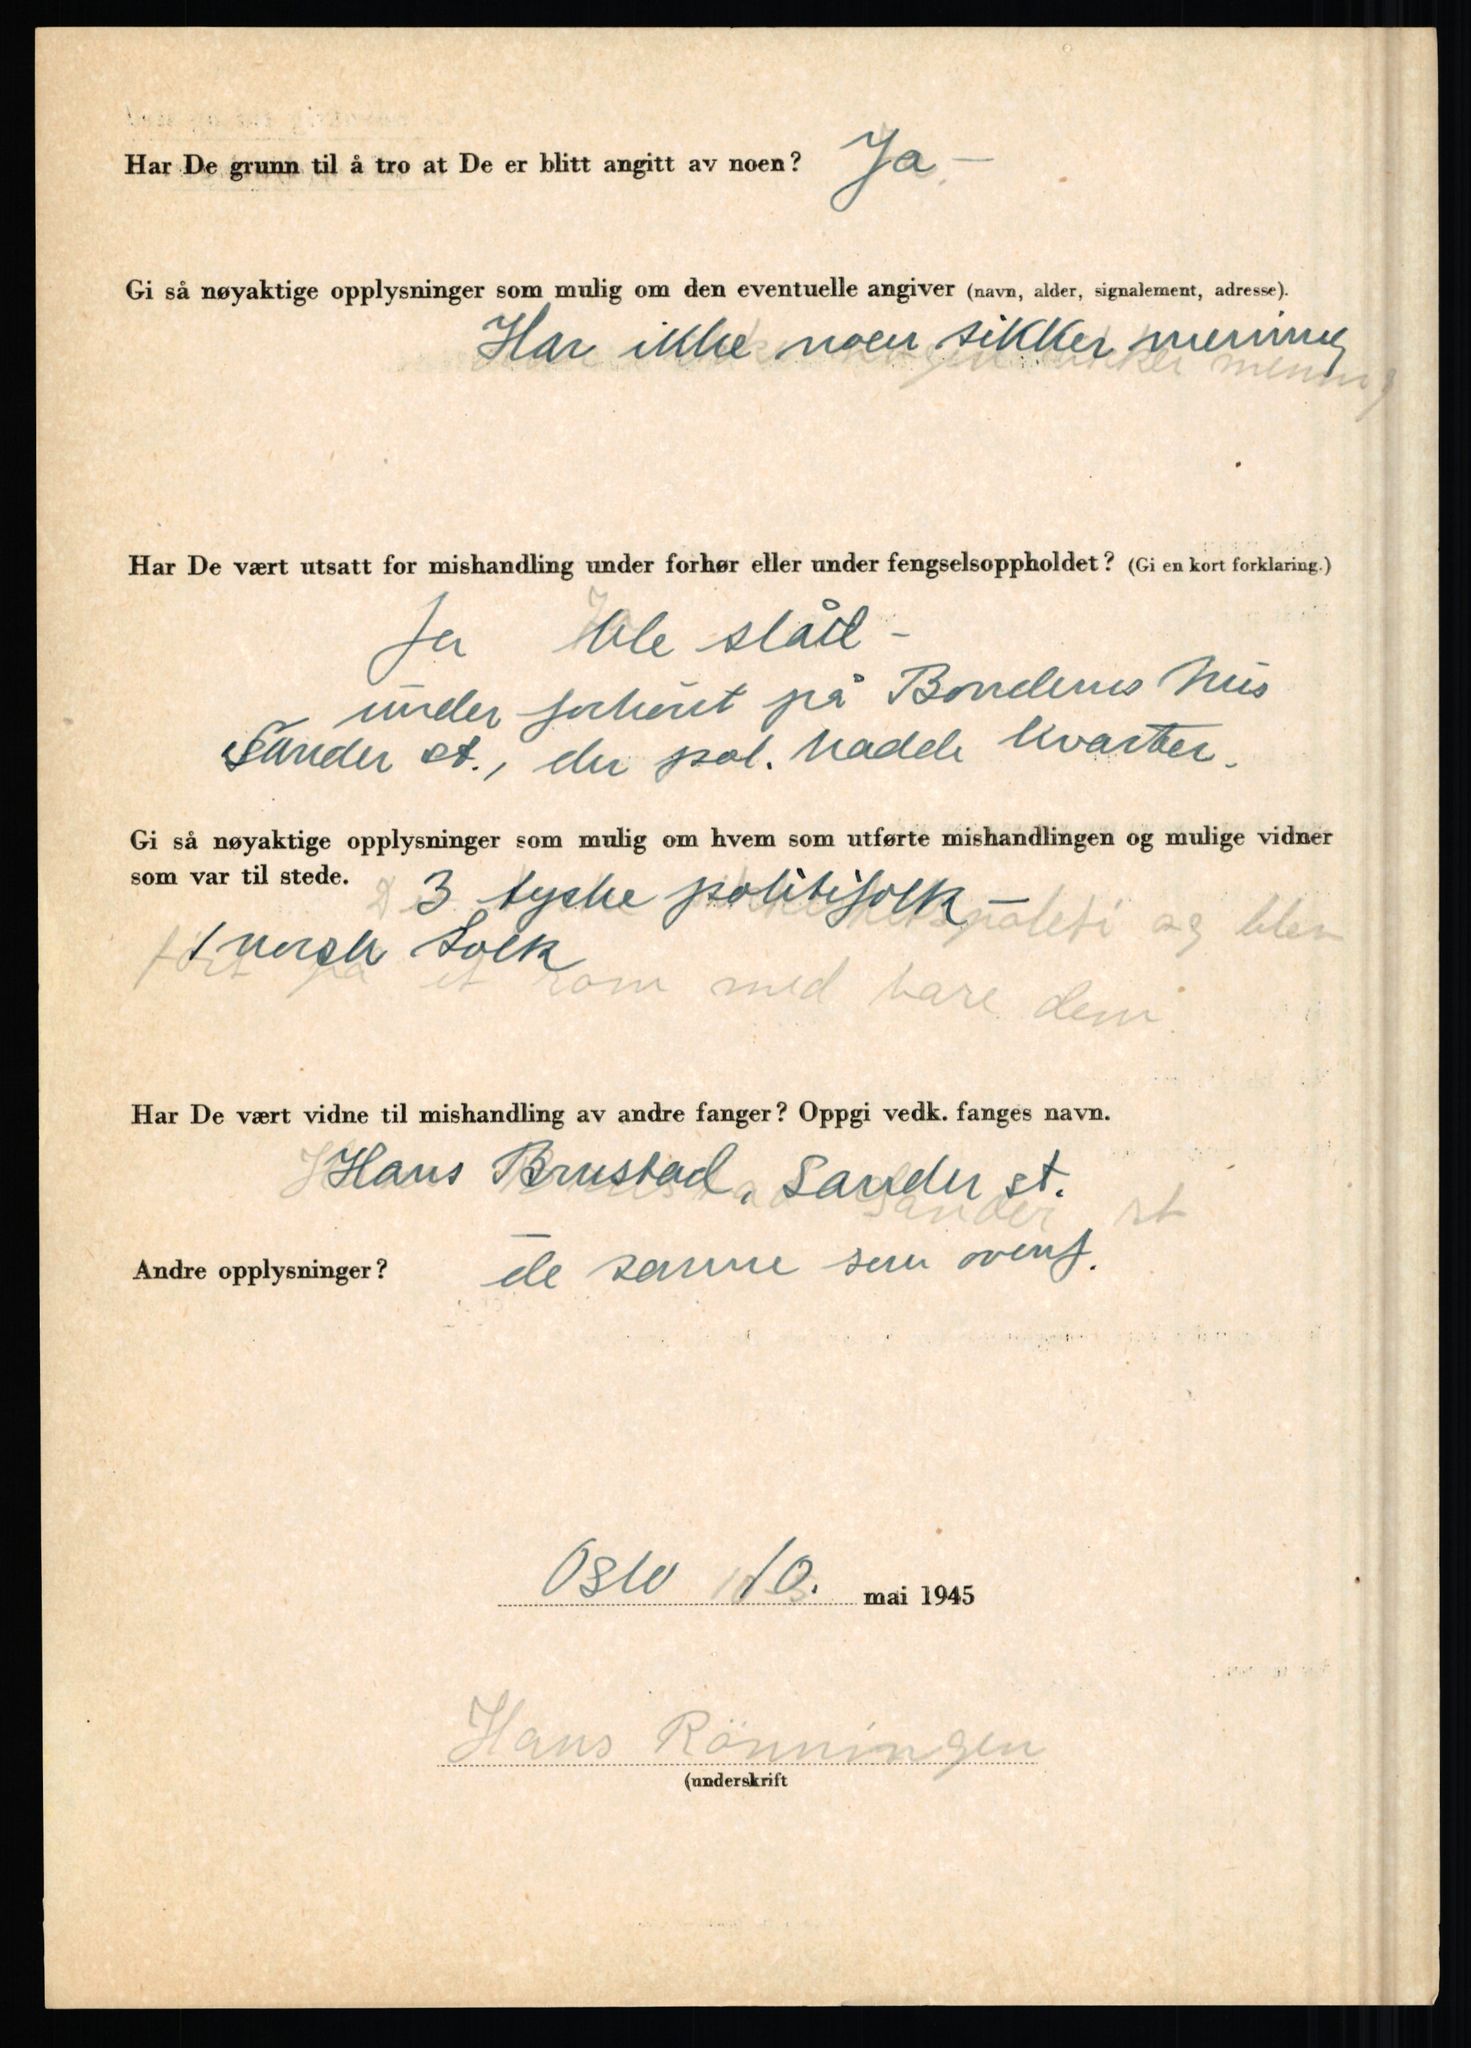 Har De grunn til å tro at De er blitt angitt av noen? Ja -
Gi så nøyaktige opplysninger som mulig om den eventuelle angiver (navn, alder, signalement, adresse).
Har ikke noen sikker mening
Har De vært utsatt for mishandling under forhør eller under fengselsoppholdet? (Gi en kort forklaring.)
Ja Ble slått -
under forhöret på Bondenes hus
Sander st., der pol. hadde kvarter.
Gi så nøyaktige opplysninger som mulig om hvem som utførte mishandlingen og mulige vidner
som var til stede. 3 tyske politifolk -
1 norsk tolk
på et rom med bare dem
Har De vært vidne til mishandling av andre fanger? Oppgi vedk. fanges navn.
Hans Brustad, Sander st.
Andre opplysninger? de samme som ovenf.
Oslo 10. mai 1945
Hans Rönningen
(underskrift